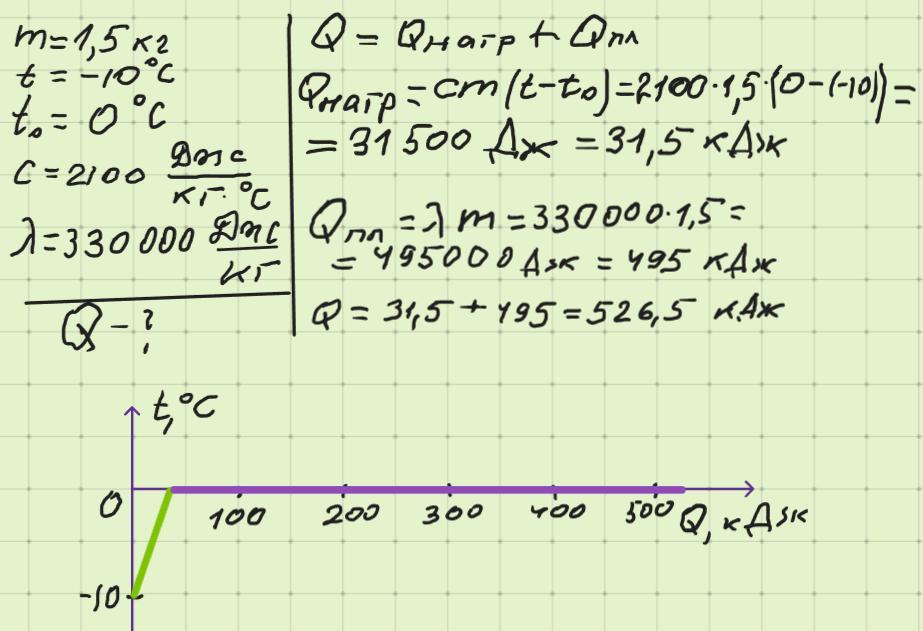 m=1,5 кг
t = -10 °C
t₀ = 0 °C
c = 2100 Дж/кг·°C
λ=330 000 Дж/кг
Q - ?
Q = Qнагр + Qпл
Qнагр = cm(t-t₀)=2100·1,5·(0-(-10))=
= 31 500 Дж = 31,5 кДж
Qпл = λ m = 330000·1,5 =
= 495000 Дж = 495 кДж
Q = 31,5 + 495 = 526,5 кДж
t,°C
0
100 200 300 400 500 Q, кДж
-10